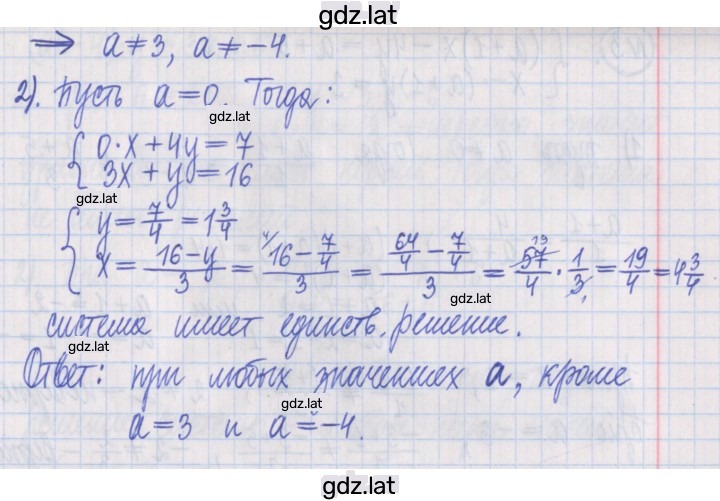 gdz.lat
⟹ a≠3, a≠-4.
2). Пусть a=0. Тогда:
gdz.lat
{ 0·x+4y=7
3x+y=16
gdz.lat
{ y=7/4=1 3/4
x=(16-y)/3=(4/16-7/4)/3=(64/4-7/4)/3=57 19/4·1/3 1=19/4=4 3/4.
gdz.lat
система имеет единств. решение.
gdz.lat
Ответ: при любых значениях a, кроме
gdz.lat
a=3 и a=-4.
gdz.lat